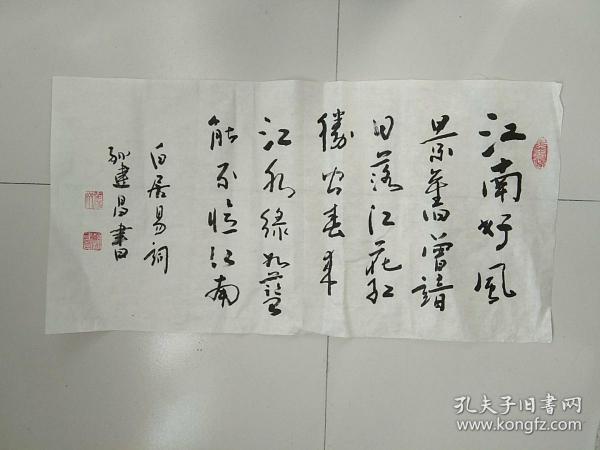 江南好風
景舊曾諳
日落江花紅
勝火春來
江水綠如藍
能不憶江南
白居易詞
孫建昌書
孔夫子旧书网
www.kongfz.com